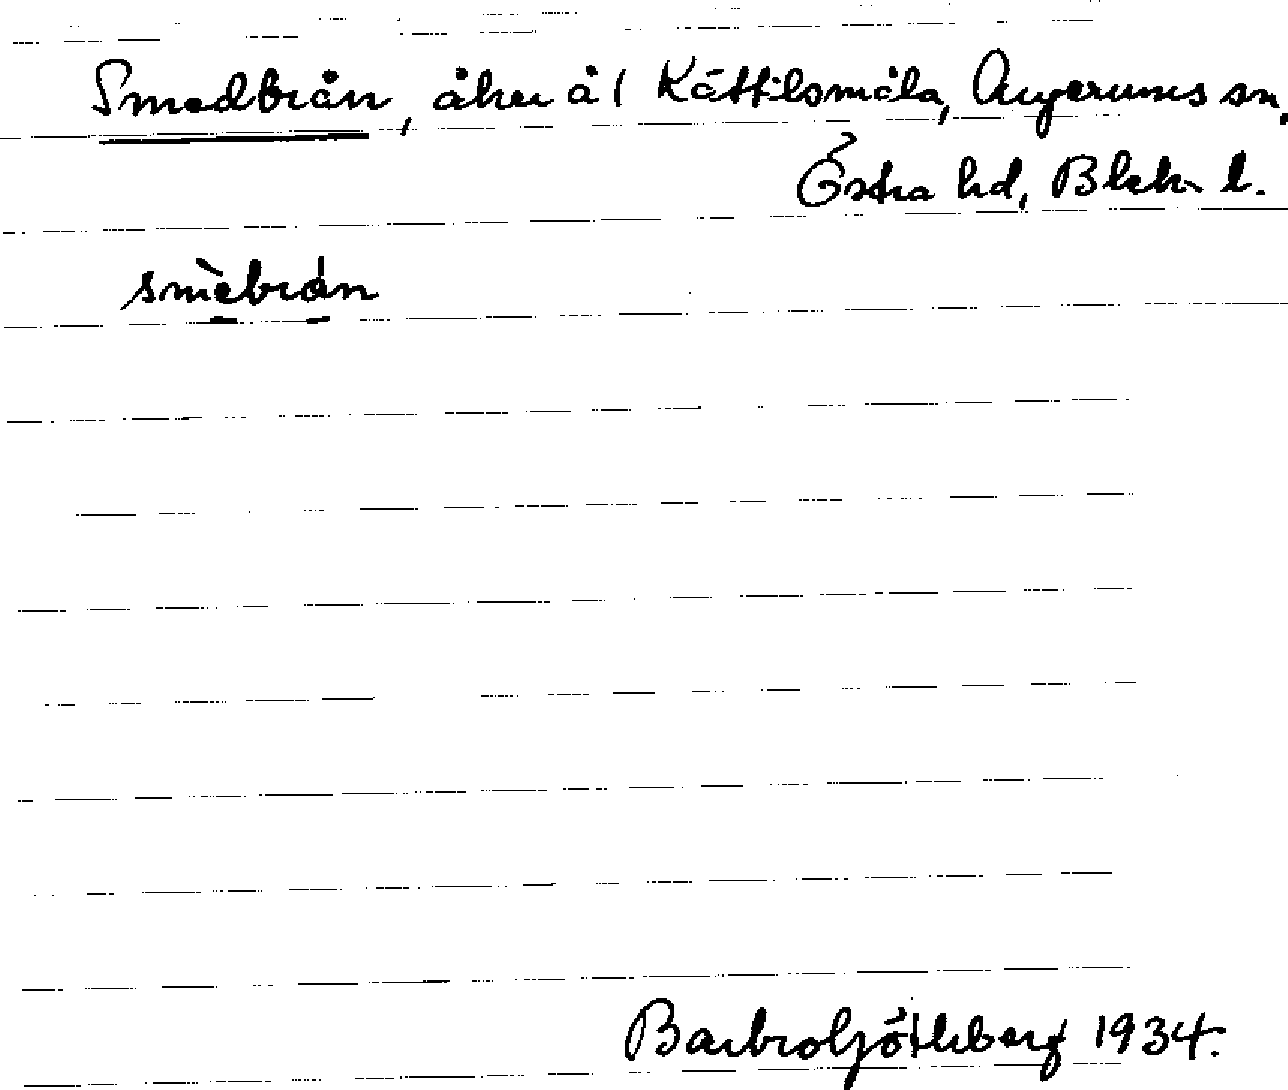 Smedbrån, åker å 1 Kättilsmåla, Augerums sn,
Östra hd, Blek. l.
smèbrán
Barbro Götleberg 1934.